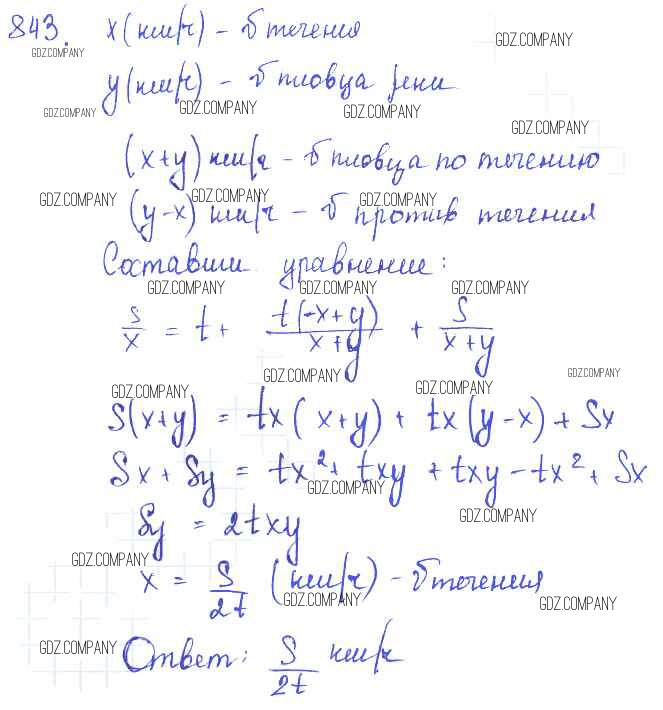 843. x(км/ч) – υ течения
GDZ.COMPANY GDZ.COMPANY
y(км/ч) – υ пловца реки
GDZ.COMPANY GDZ.COMPANY GDZ.COMPANY
GDZ.COMPANY
(x+y) км/ч – υ пловца по течению
GDZ.COMPANY GDZ.COMPANY GDZ.COMPANY
(y-x) км/ч – υ против течения
Составим уравнение:
GDZ.COMPANY GDZ.COMPANY GDZ.COMPANY
S/x = t + t(-x+y)/(x+y) + S/(x+y)
GDZ.COMPANY GDZ.COMPANY
GDZ.COMPANY GDZ.COMPANY
S(x+y) = tx(x+y) + tx(y-x) + Sx
Sx + Sy = tx² + txy + txy - tx² + Sx
GDZ.COMPANY
Sy = 2txy
GDZ.COMPANY
GDZ.COMPANY
x = S/2t (км/ч) – υ течения
GDZ.COMPANY GDZ.COMPANY
GDZ.COMPANY
Ответ: S/2t км/ч